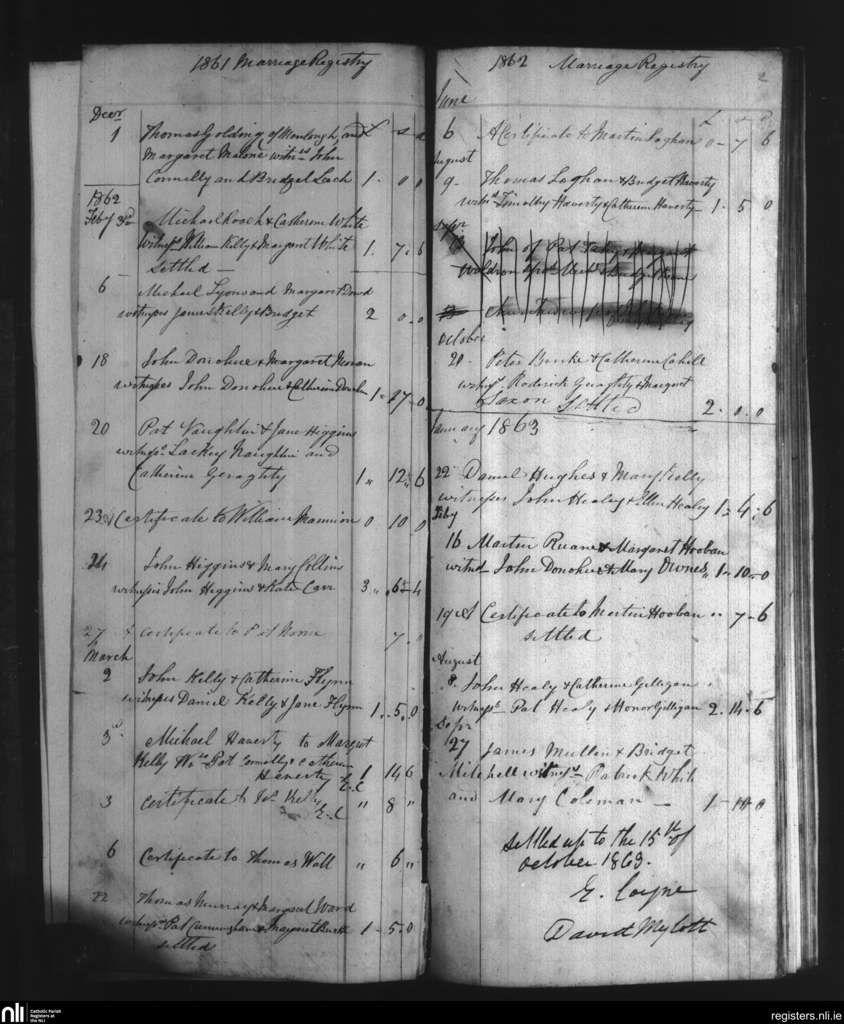 1861 Marriage Registry
Decr
1 Thomas Golding of Menlough, and £ s d
Margaret Malone witnss John
Connelly and Bridget Leech 1 - 0 0
1862
Feby 3rd Michael Roach & Catherine White
witnss William Kelly & Margaret White 1. 7. 6
settled —
6 Michael Lyons and Margaret Dowd
witnesses James Kelly & Bridget 2 0. 0
18 John Donohue & Margaret Moran
witnesses John Donohue & Catherine 1 - 17 - 0
20 Pat Naughtin & Jane Higgins
witnss Lackey Naughtin and
Catherine Geraghty 1 " 12 " 6
23rd Certificate to William Mannion 0 10 0
24 John Higgins & Mary Collins
witnesses John Higgins & Kate Carr 3 " 6 - 4
27 Certificate to Pat 7. 0
March
2 John Kelly & Catherine Flynn
witnesses Daniel Kelly & Jane Flynn 1. . 5. 0
3d. Michael Haverty to Margret
Kelly Pat Connolly & Catherine
Haverty E. C 1 14 6
3 Certificate to Kelly " 8 "
E. C
6 Certificate to Thomas Wall " 6 "
22 Thomas Murray & Margaret Ward
witnss Pat Cunningham & Margaret Burke 1 - 5. 0
settled
1862 Marriage Registry 2
June £ s d
6 A Certificate to Martin Loghan 0 - 7 6
August
9 - Thomas Loghan & Bridget Haverty
witnss Timothy Haverty & Catherine Haverty 1 - 5 0
Sepr
John of Pat
October
20. Peter Burke & Catherine Cahill
witnss Roderick Geraghty & Margaret
Saxon Settled 2 - 0. 0
January 1863
22 Daniel Hughes & Mary Kelly
witnesses John Healey & Ellen Healey 1 - 4 - 6
Feby
16 Martin Ruane & Margaret Hooban
witnd John Donohue & Mary Ownes " 1 - 10 - 0
19 Certificate to Martin Hooban " 7 - 6
settled
August
8. John Healy & Catherine Gilligan
witnss Pat Healy & Honor Gilligan 2 - 14 - 6
Sepr
27 James Mullen & Bridget
Mitchell witnss Patrick White
and Mary Coleman — 1 - 10 0
Settled up to the 15th of
October 1863.
E. Coyne
David Mylott
nli
Catholic Parish
Registers at
the NLI
registers.nli.ie